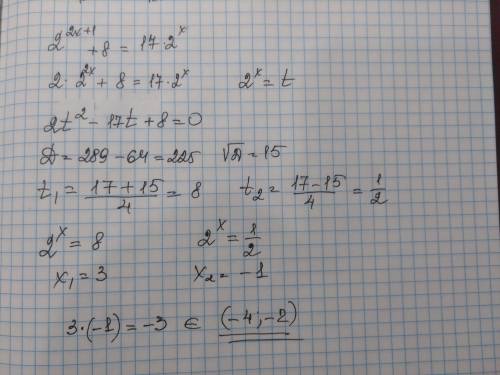 2^{2x+1} + 8 = 17 · 2^x
2 · 2^{2x} + 8 = 17 · 2^x    2^x = t
2t^2 - 17t + 8 = 0
D = 289 - 64 = 225    √D = 15
t_1 = \frac{17 + 15}{4} = 8    t_2 = \frac{17 - 15}{4} = \frac{1}{2}
2^x = 8    2^x = \frac{1}{2}
x_1 = 3    x_2 = -1
3 · (-1) = -3 ∈ (-4; -2)